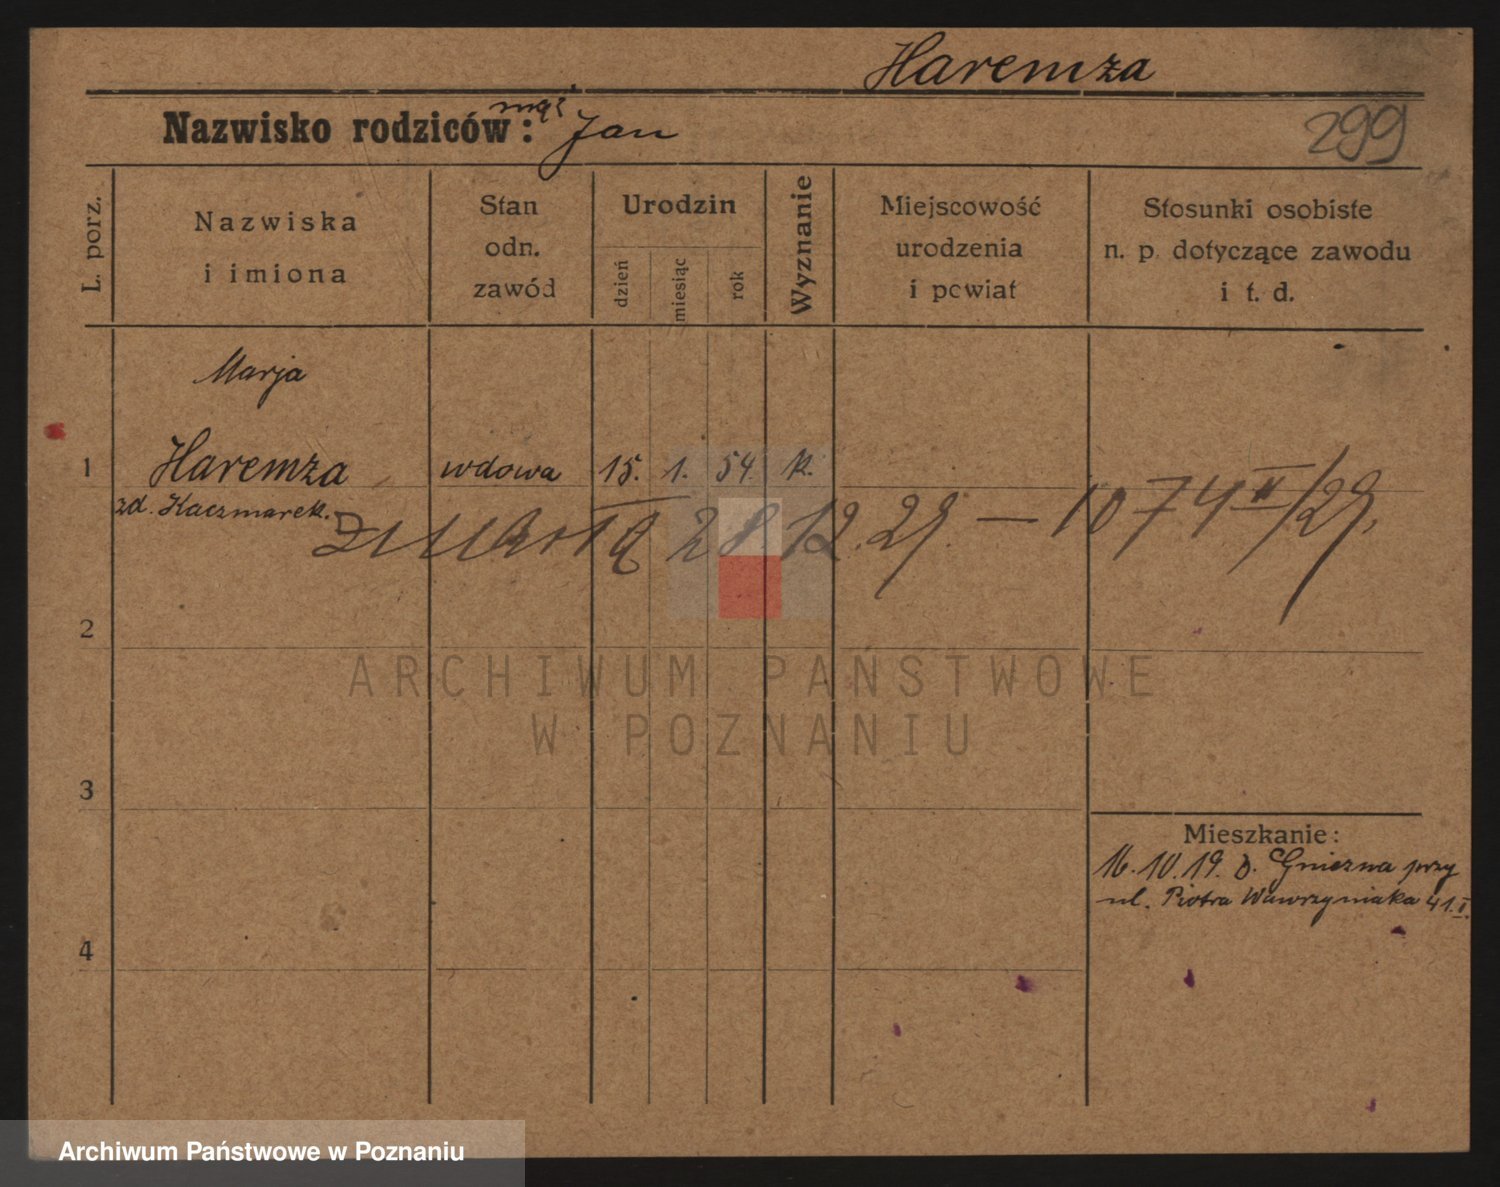 Haremża
299
Nazwisko rodziców: mąż Jan
L. porz.
Nazwiska
i imiona
Stan
odn.
zawód
Urodzin
dzień
miesiąc
rok
Wyznanie
Miejscowość
urodzenia
i powiat
Stosunki osobiste
n. p. dotyczące zawodu
i t. d.
Marja
1 Haremża wdowa 15. 1. 54. k.
zd. Kaczmarek.
zmarła 28 12. 29. — 1074 II/29.
2
ARCHIWUM PAŃSTWOWE
W POZNANIU
3
Mieszkanie:
16.10.19. d. Gniezna przy
ul. Piotra Wawrzyniaka 41.I.
4
Archiwum Państwowe w Poznaniu